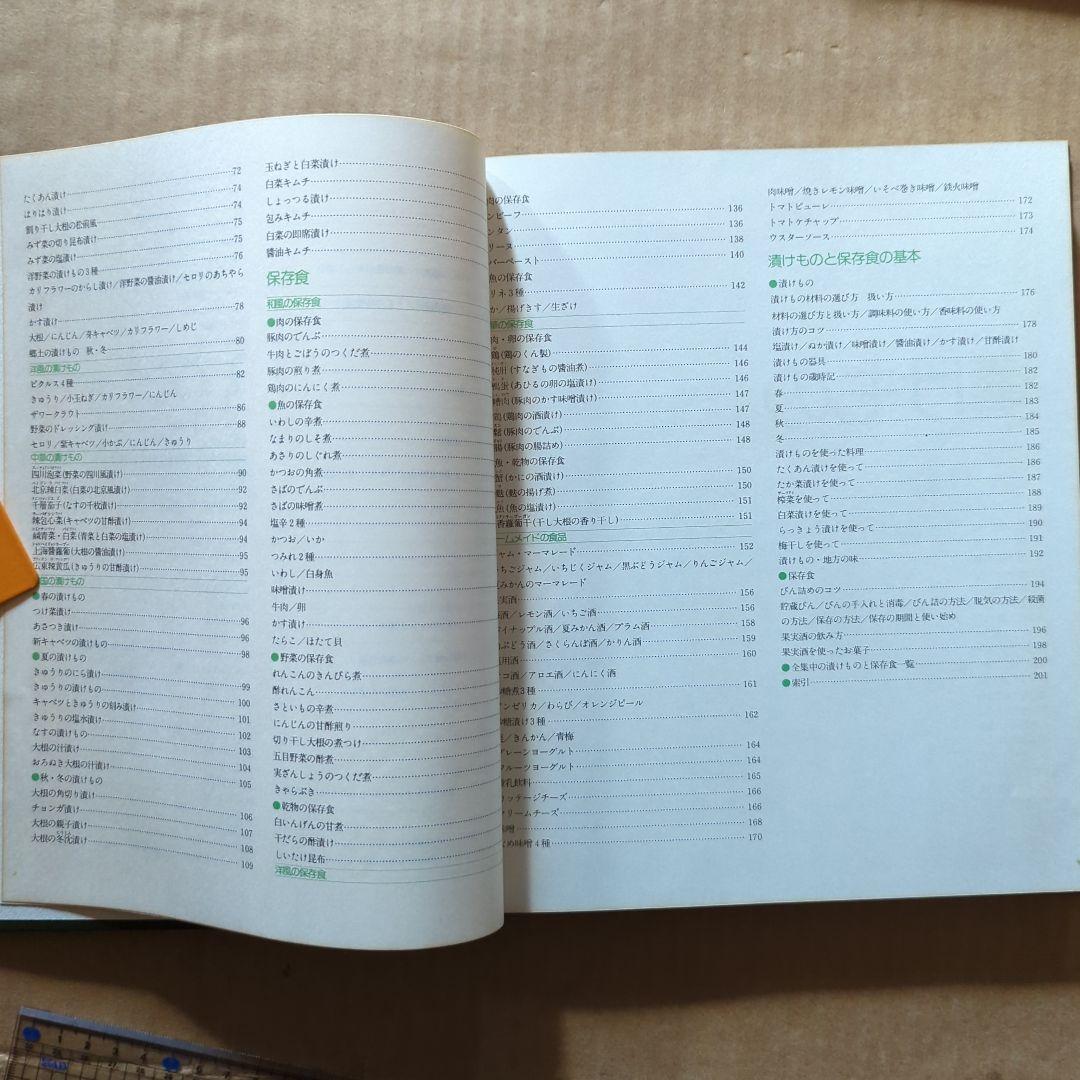 たくあん漬け 72
はりはり漬け 74
割り干し大根の松前風 74
みず菜の切り昆布漬け 75
みず菜の塩漬け 75
洋野菜の漬けもの3種 76
カリフラワーのからし漬け/洋野菜の醬油漬け/セロリのあちゃら
漬け
かす漬け 78
大根/にんじん/芽キャベツ/カリフラワー/しめじ
郷土の漬けもの 秋・冬 80
洋風の漬けもの
ピクルス4種 82
きゅうり/小玉ねぎ/カリフラワー/にんじん
ザワークラウト 86
野菜のドレッシング漬け 88
セロリ/紫キャベツ/小かぶ/にんじん/きゅうり
中華の漬けもの
四川泡菜(野菜の四川風漬け) 90
北京辣白菜(白菜の北京風漬け) 92
千層茄子(なすの千枚漬け) 92
辣包心菜(キャベツの甘酢漬け) 94
鹹青菜・白菜(青菜と白菜の塩漬け) 94
上海醬蘿蔔(大根の醬油漬け) 95
広東辣黄瓜(きゅうりの甘酢漬け) 95
国の漬けもの
●春の漬けもの
つけ菜漬け 96
あさつき漬け 96
新キャベツの漬けもの 98
●夏の漬けもの
きゅうりのにら漬け 99
きゅうりの漬けもの 100
キャベツときゅうりの刻み漬け 101
きゅうりの塩水漬け 102
なすの漬けもの 103
大根の汁漬け 104
おろぬき大根の汁漬け 105
●秋・冬の漬けもの
大根の角切り漬け 106
チョンガ漬け 107
大根の親子漬け 108
大根の冬沈漬け 109
玉ねぎと白菜漬け
白菜キムチ
しょっつる漬け
包みキムチ
白菜の即席漬け
醬油キムチ
保存食
和風の保存食
●肉の保存食
豚肉のでんぶ
牛肉とごぼうのつくだ煮
豚肉の煎り煮
鶏肉のにんにく煮
●魚の保存食
いわしの辛煮
なまりのしそ煮
あさりのしぐれ煮
かつおの角煮
さばのでんぶ
さばの味噌煮
塩辛2種
かつお/いか
つみれ2種
いわし/白身魚
味噌漬け
牛肉/卵
かす漬け
たらこ/ほたて貝
●野菜の保存食
れんこんのきんぴら煮
酢れんこん
さといもの辛煮
にんじんの甘酢煎り
切り干し大根の煮つけ
五目野菜の酢煮
実ざんしょうのつくだ煮
きゃらぶき
●乾物の保存食
白いんげんの甘煮
干だらの酢漬け
しいたけ昆布
洋風の保存食
肉の保存食
ンビーフ 136
ンタン 136
リーヌ 138
バーペースト 140
魚の保存食
リネ3種 142
か/揚げきす/生ざけ
華の保存食
肉・卵の保存食
鶏(鶏のくん製) 144
(すなぎもの醬油煮) 146
蛋(あひるの卵の塩漬け) 146
糟肉(豚肉のかす味噌漬け) 147
鶏(鶏肉の酒漬け) 147
鬆(豚肉のでんぶ) 148
腸(豚肉の腸詰め) 148
魚・乾物の保存食
蟹(かにの酒漬け) 150
麩(麩の揚げ煮) 150
魚(魚の塩漬け) 151
香蘿蔔干(干し大根の香り干し) 151
ームメイドの食品
ャム・マーマレード 152
ちごジャム/いちじくジャム/黒ぶどうジャム/りんごジャム/
夏みかんのマーマレード
実酒 156
酒/レモン酒/いちご酒 156
イナップル酒/夏みかん酒/プラム酒 158
ぶどう酒/さくらんぼ酒/かりん酒 159
用酒 160
コ酒/アロエ酒/にんにく酒
糖煮3種 161
ンゼリカ/わらび/オレンジピール
糖漬け3種 162
/きんかん/青梅
レーンヨーグルト 164
ルーツヨーグルト 164
乳飲料 165
ッテージチーズ 166
リームチーズ 166
噌 168
め味噌4種 170
肉味噌/焼きレモン味噌/いそべ巻き味噌/鉄火味噌
トマトピューレ 172
トマトケチャップ 173
ウスターソース 174
漬けものと保存食の基本
●漬けもの
漬けもの材料の選び方 扱い方 176
材料の選び方と扱い方/調味料の使い方/香味料の使い方
漬け方のコツ 178
塩漬け/ぬか漬け/味噌漬け/醬油漬け/かす漬け/甘酢漬け
漬けもの器具 180
漬けもの歳時記 182
春 182
夏 183
秋 184
冬 185
漬けものを使った料理 186
たくあん漬けを使って 186
たか菜漬けを使って 187
榨菜を使って 188
白菜漬けを使って 189
らっきょう漬けを使って 190
梅干しを使って 191
漬けもの・地方の味 192
●保存食
びん詰めのコツ 194
貯蔵びん/びんの手入れと消毒/びん詰の方法/脱気の方法/殺菌
の方法/保存の方法/保存の期間と使い始め
果実酒の飲み方 196
果実酒を使ったお菓子 198
●全集中の漬けものと保存食一覧 200
●索引 201